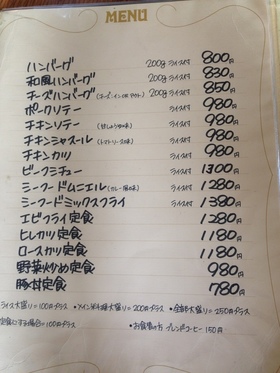 MENU
ハンバーグ 200g ライス付 800円
和風ハンバーグ 200g ライス付 830円
チーズハンバーグ(チーズ・イン or アウト) 200g ライス付 850円
ポークソテー ライス付 980円
チキンソテー ライス付 980円
チキンシャスール(トマトソース味) ライス付 980円
チキンカツ ライス付 980円
ビーフシチュー ライス付 1300円
シーフードムニエル(カレー風味) ライス付 1280円
シーフードミックスフライ ライス付 1380円
エビフライ定食 1280円
ヒレカツ定食 1180円
ロースカツ定食 1180円
野菜炒め定食 980円
豚丼定食 780円
ライス大盛り=100円プラス ・メイン 大盛り=200円プラス ・全部大盛り=250円プラス
定食にする場合=100円プラス ・お食事の方 ブレンドコーヒー150円